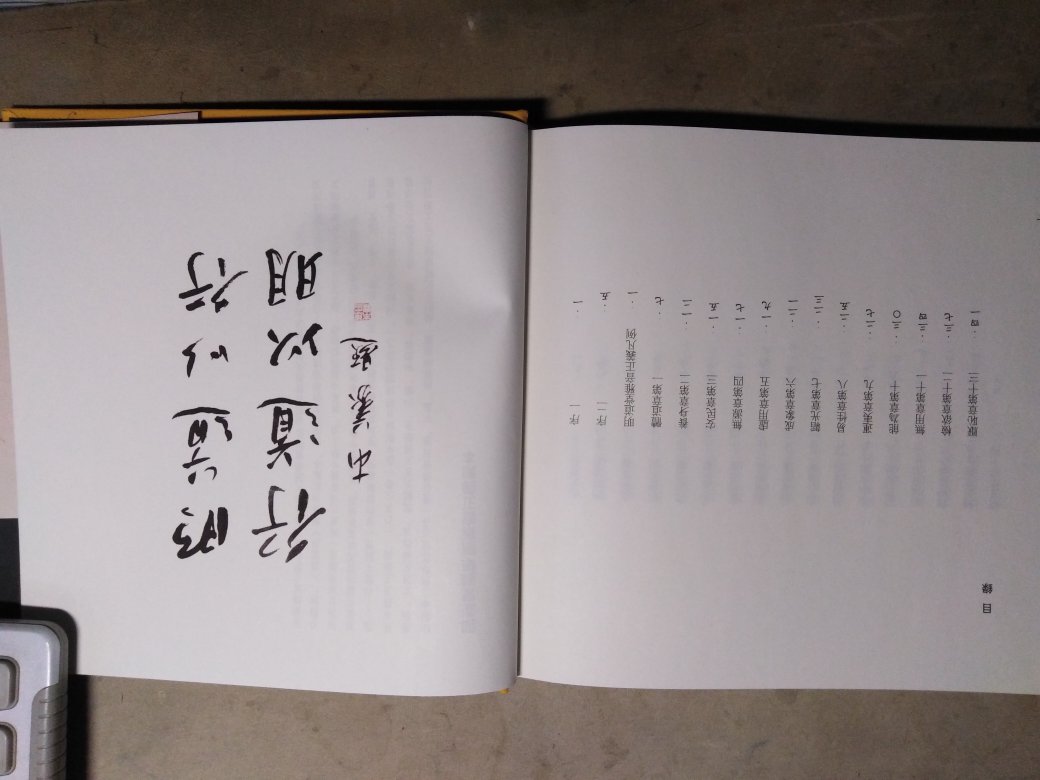 明道以行
行道以明
目錄
序一 ·一
序二 ·五
明道堂雅音正義凡例 ·一
體道章第一 ·七
養身章第二 ·一二
安民章第三 ·一五
無源章第四 ·一七
虛用章第五 ·一九
成象章第六 ·二一
韜光章第七 ·二三
易性章第八 ·二五
運夷章第九 ·二七
能為章第十 ·三〇
無用章第十一 ·三四
檢欲章第十二 ·三七
厭恥章第十三 ·四一